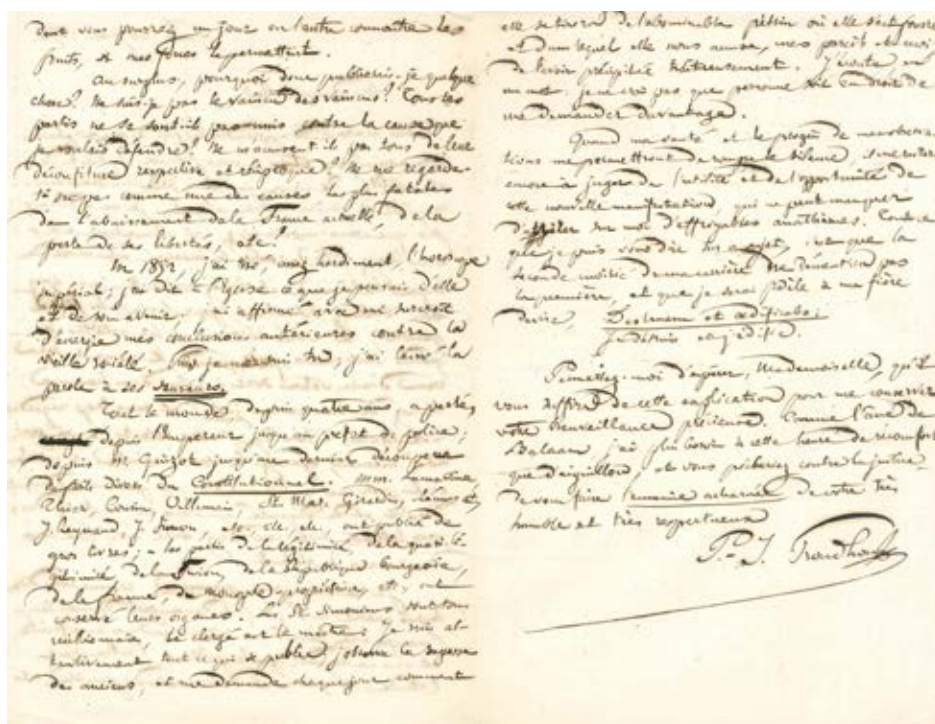 dont vous pourrez un jour ou l'autre connaître les
fruits, si mes forces le permettent.
Au surplus, pourquoi donc publierais-je quelque
chose? Ne suis-je pas le vaincu des vaincus? Tous les
partis ne se sont-ils pas unis contre la cause que
je voulais défendre? Ne m'accusent-ils pas tous de leur
déconfiture respective et réciproque? Ne me regarde-
t-on pas comme une des causes les plus fatales
de l'abaissement de la France actuelle, de la
perte de ses libertés, etc?
En 1852, j'ai osé, assez hardiment,
impérial; j'ai dit à l'Église ce que je pensais d'elle
et de son avenir. j'ai affirmé avec un surcroît
d'énergie mes conclusions antérieures contre la
vieille société. Puis je me suis tu; j'ai laissé la
parole à ses
Tout le monde, depuis quatre ans, a parlé,
depuis l'Empereur jusqu'au préfet de police;
depuis M. Guizot jusqu'au dernier découpeur
de faits divers du Constitutionnel. MM. Lamartine
Thiers, Cousin, Villemain, St Marc Girardin,
J. Reynaud, J. Simon, etc. etc. etc. ont publié de
gros livres; les partis de la légitimité, de la quasi-lé-
gitimité, de la fusion, de la République bourgeoise,
de la, du monopole propriétaire, etc, ont
conservé leurs organes. Les St Simoniens sont tous
millionnaires, le clergé est le maître: Je suis at-
tentivement tout ce qui se publie, j'observe la sagesse
des anciens, et me demande chaque jour comment
elle se tirera de l'abominable pétrin où elle s'enfonce
et dans lequel elle nous accuse, mes pareils et moi
de l'avoir précipitée traîtreusement. J'écoute en
un mot: je ne crois pas que personne soit en droit de
me demander davantage.
Quand ma santé et le progrès de mes observa-
tions me permettront de rompre le silence, il me restera
encore à juger de l'utilité et de l'opportunité de
cette nouvelle manifestation, qui ne peut manquer
d'attirer sur moi d'effroyables anathèmes. Tout ce
que je puis vous dire à ce sujet, c'est que la
seconde moitié de ma carrière ne démentira pas
la première, et que je serai fidèle à ma fière
devise, Destruam et ædificabo;
je détruis et j'édifie.
Permettez-moi d'espérer, Mademoiselle, qu'il
vous suffira de cette explication pour me conserver
votre bienveillance précieuse. Comme l'âne de
Balaam, j'ai plus besoin à cette heure de réconfort
que d'aiguillon, et vous pécheriez contre la justice
de vous faire l'ennemie acharnée de votre très
humble et très respectueux
P.-J. Proudhon